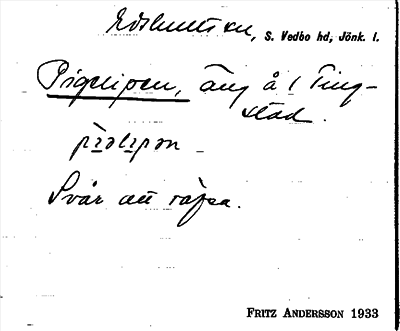 Edshults sn, S. Vedbo hd, Jönk. l.
Pigelipen, äng å 1 Ting-
stad.
Svår att räfsa.
FRITZ ANDERSSON 1933